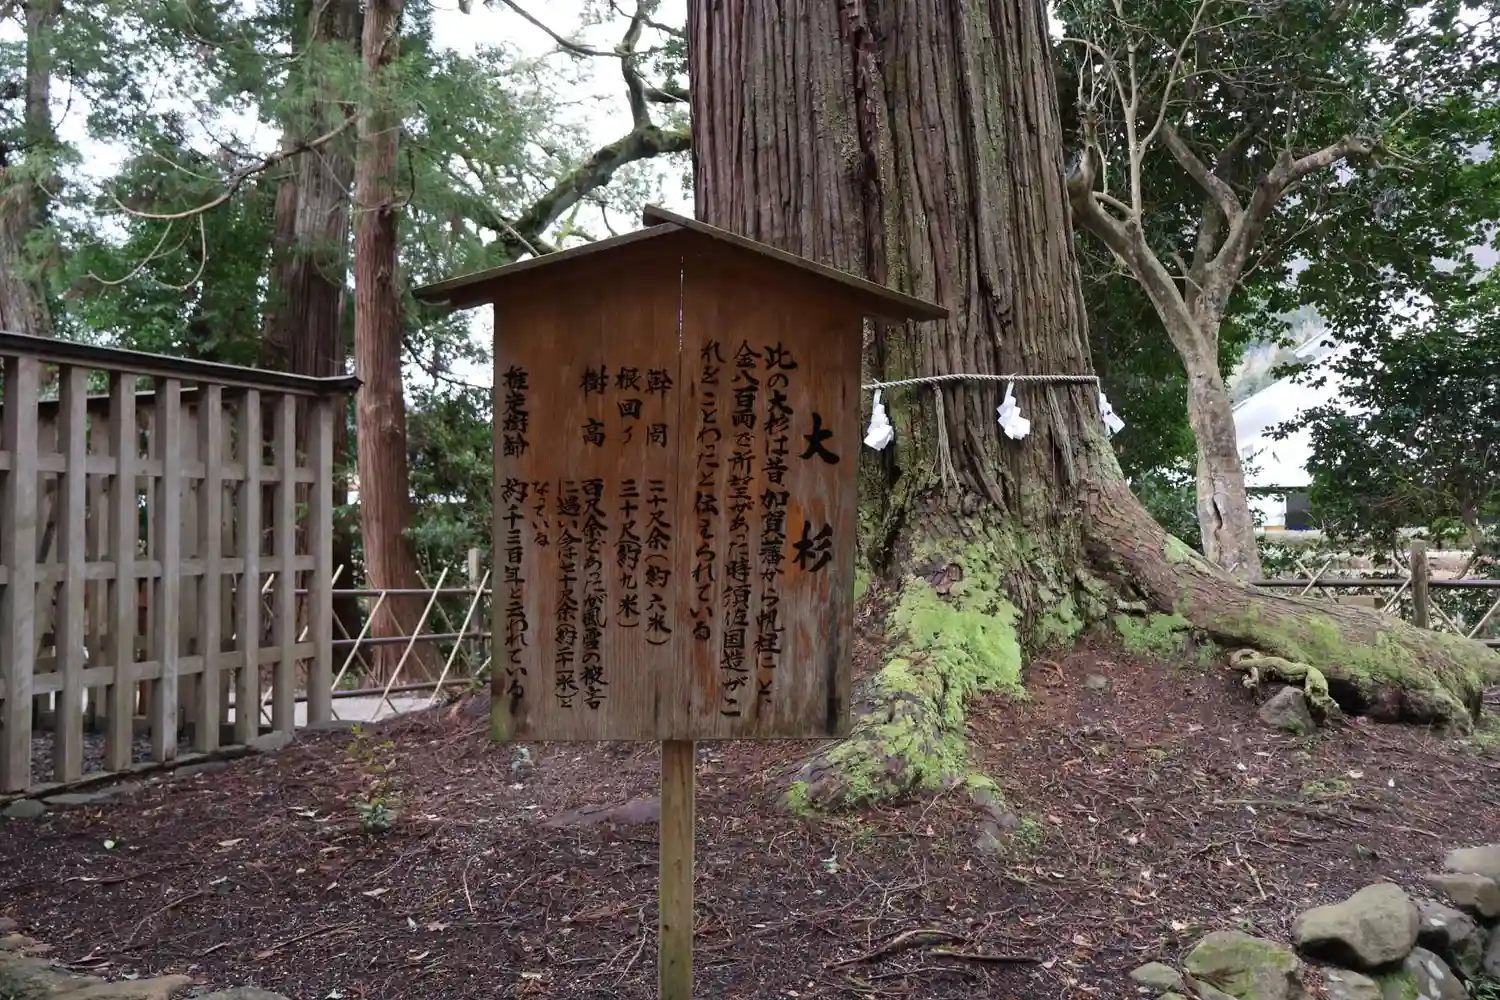 大杉
此の大杉は昔加賀藩から帆柱にと、
金八百両で所望があった時須佐国造がこ
れをことわったと伝えられている
幹周 二十尺余(約六米)
根回り 三十尺(約九米)
樹高 百尺余であったが風雪の被害
に遇い今は七十尺余(約二十米)と
なっている
推定樹齢 約千三百年と云われている